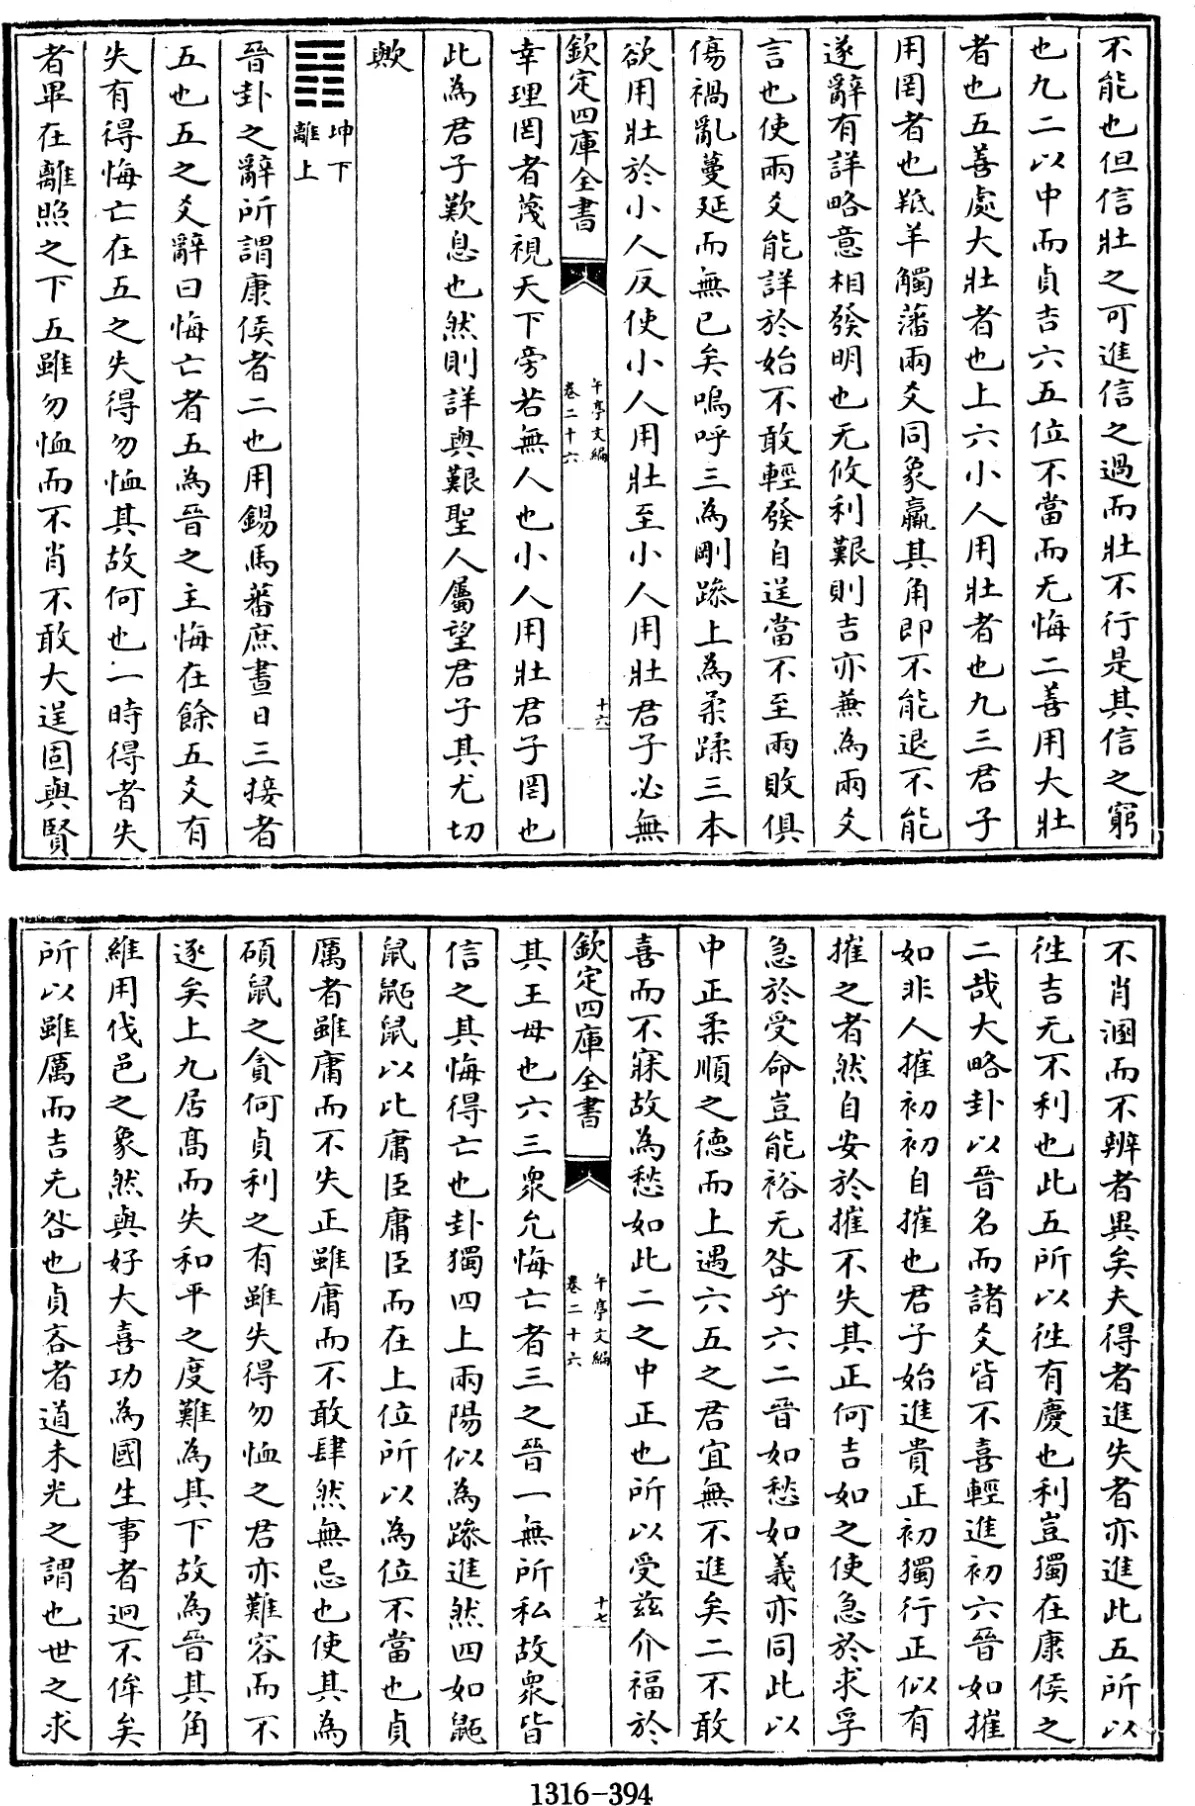 不能也但信壯之可進信之過而壯不行是其信之窮
也九二以中而貞吉六五位不當而无悔二善用大壯
者也五善處大壯者也上六小人用壯者也九三君子
用罔者也羝羊觸藩兩爻同象羸其角即不能退不能
遂辭有詳略意相發明也无攸利艱則吉亦兼為兩爻
言也使兩爻能詳於始不敢輕發自逞當不至兩敗俱
傷禍亂蔓延而無已矣嗚呼三為剛躁上為柔躁三本
欲用壯於小人反使小人用壯至小人用壯君子必無
欽定四庫全書
午亭文編
卷二十六
十六
幸理罔者蔑視天下旁若無人也小人用壯君子罔也
此為君子歎息也然則詳與艱聖人屬望君子其尤切
歟
坤下
離上
晉卦之辭所謂康侯者二也用錫馬蕃庶晝日三接者
五也五之爻辭曰悔亡者五為晉之主悔在餘五爻有
失有得悔亡在五之失得勿恤其故何也一時得者失
者畢在離照之下五雖勿恤而不肖不敢大逞固與賢
不肖溷而不辨者異矣夫得者進失者亦進此五所以
徃吉无不利也此五所以徃有慶也利豈獨在康侯之
二哉大略卦以晉名而諸爻皆不喜輕進初六晉如摧
如非人摧初初自摧也君子始進貴正初獨行正似有
摧之者然自安於摧不失其正何吉如之使急於求孚
急於受命豈能裕无咎乎六二晉如愁如義亦同此以
中正柔順之德而上遇六五之君宜無不進矣二不敢
喜而不寐故為愁如此二之中正也所以受茲介福於
欽定四庫全書
午亭文編
卷二十六
十七
其王母也六三衆允悔亡者三之晉一無所私故衆皆
信之其悔得亡也卦獨四上兩陽似為躁進然四如鼫
鼠鼫鼠以比庸臣庸臣而在上位所以為位不當也貞
厲者雖庸而不失正雖庸而不敢肆然無忌也使其為
碩鼠之貪何貞利之有雖失得勿恤之君亦難容而不
逐矣上九居高而失和平之度難為其下故為晉其角
維用伐邑之象然與好大喜功為國生事者迥不侔矣
所以雖厲而吉无咎也貞吝者道未光之謂也世之求
1316-394